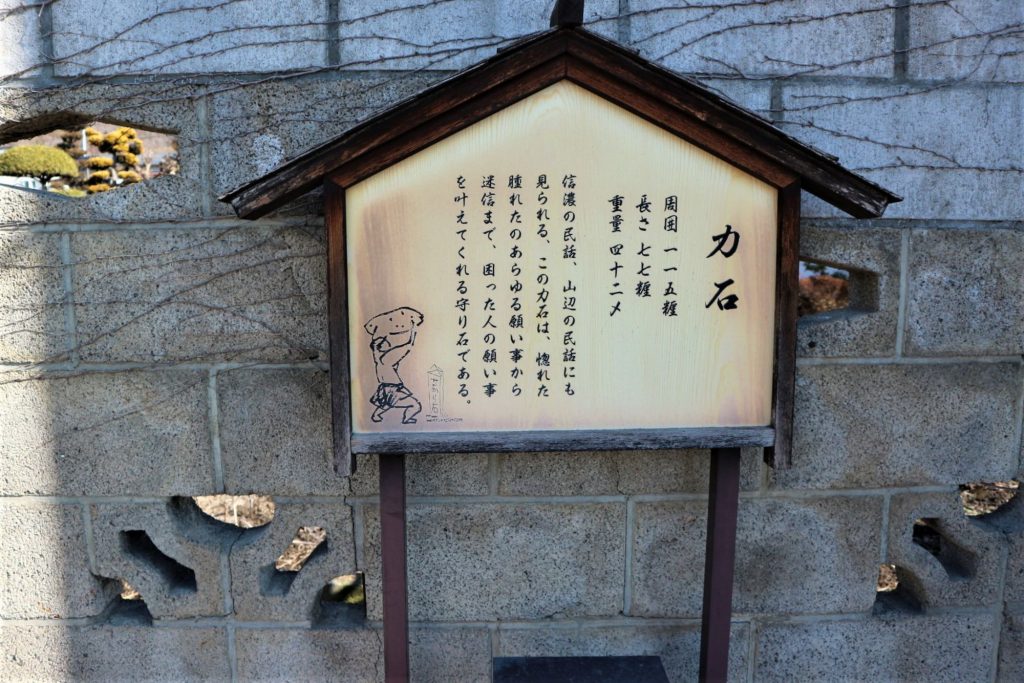 力石
周囲 一一五糎
長さ 七七糎
重量 四十二メ
信濃の民話、山辺の民話にも
見られる、この力石は、惚れた
腫れたのあらゆる願い事から
迷信まで、困った人の願い事
を叶えてくれる守り石である。